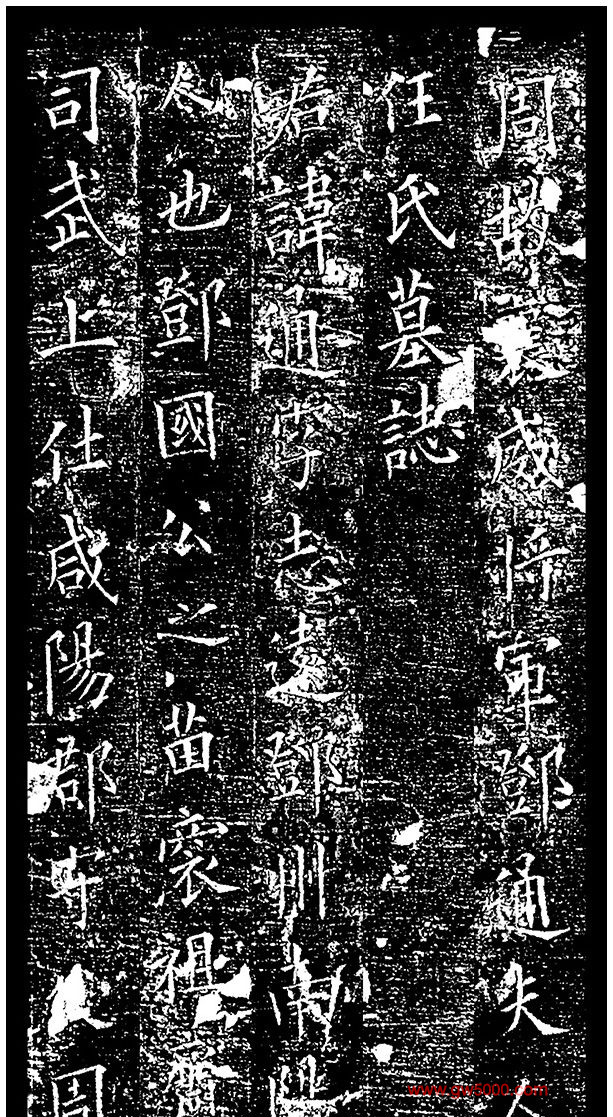 周故襄威將軍鄧通夫
任氏墓誌
君諱通字志遠鄧州南陽
人也鄧國公之苗裔祖齊
司武上仕咸陽郡守 周
www.gw5000.com